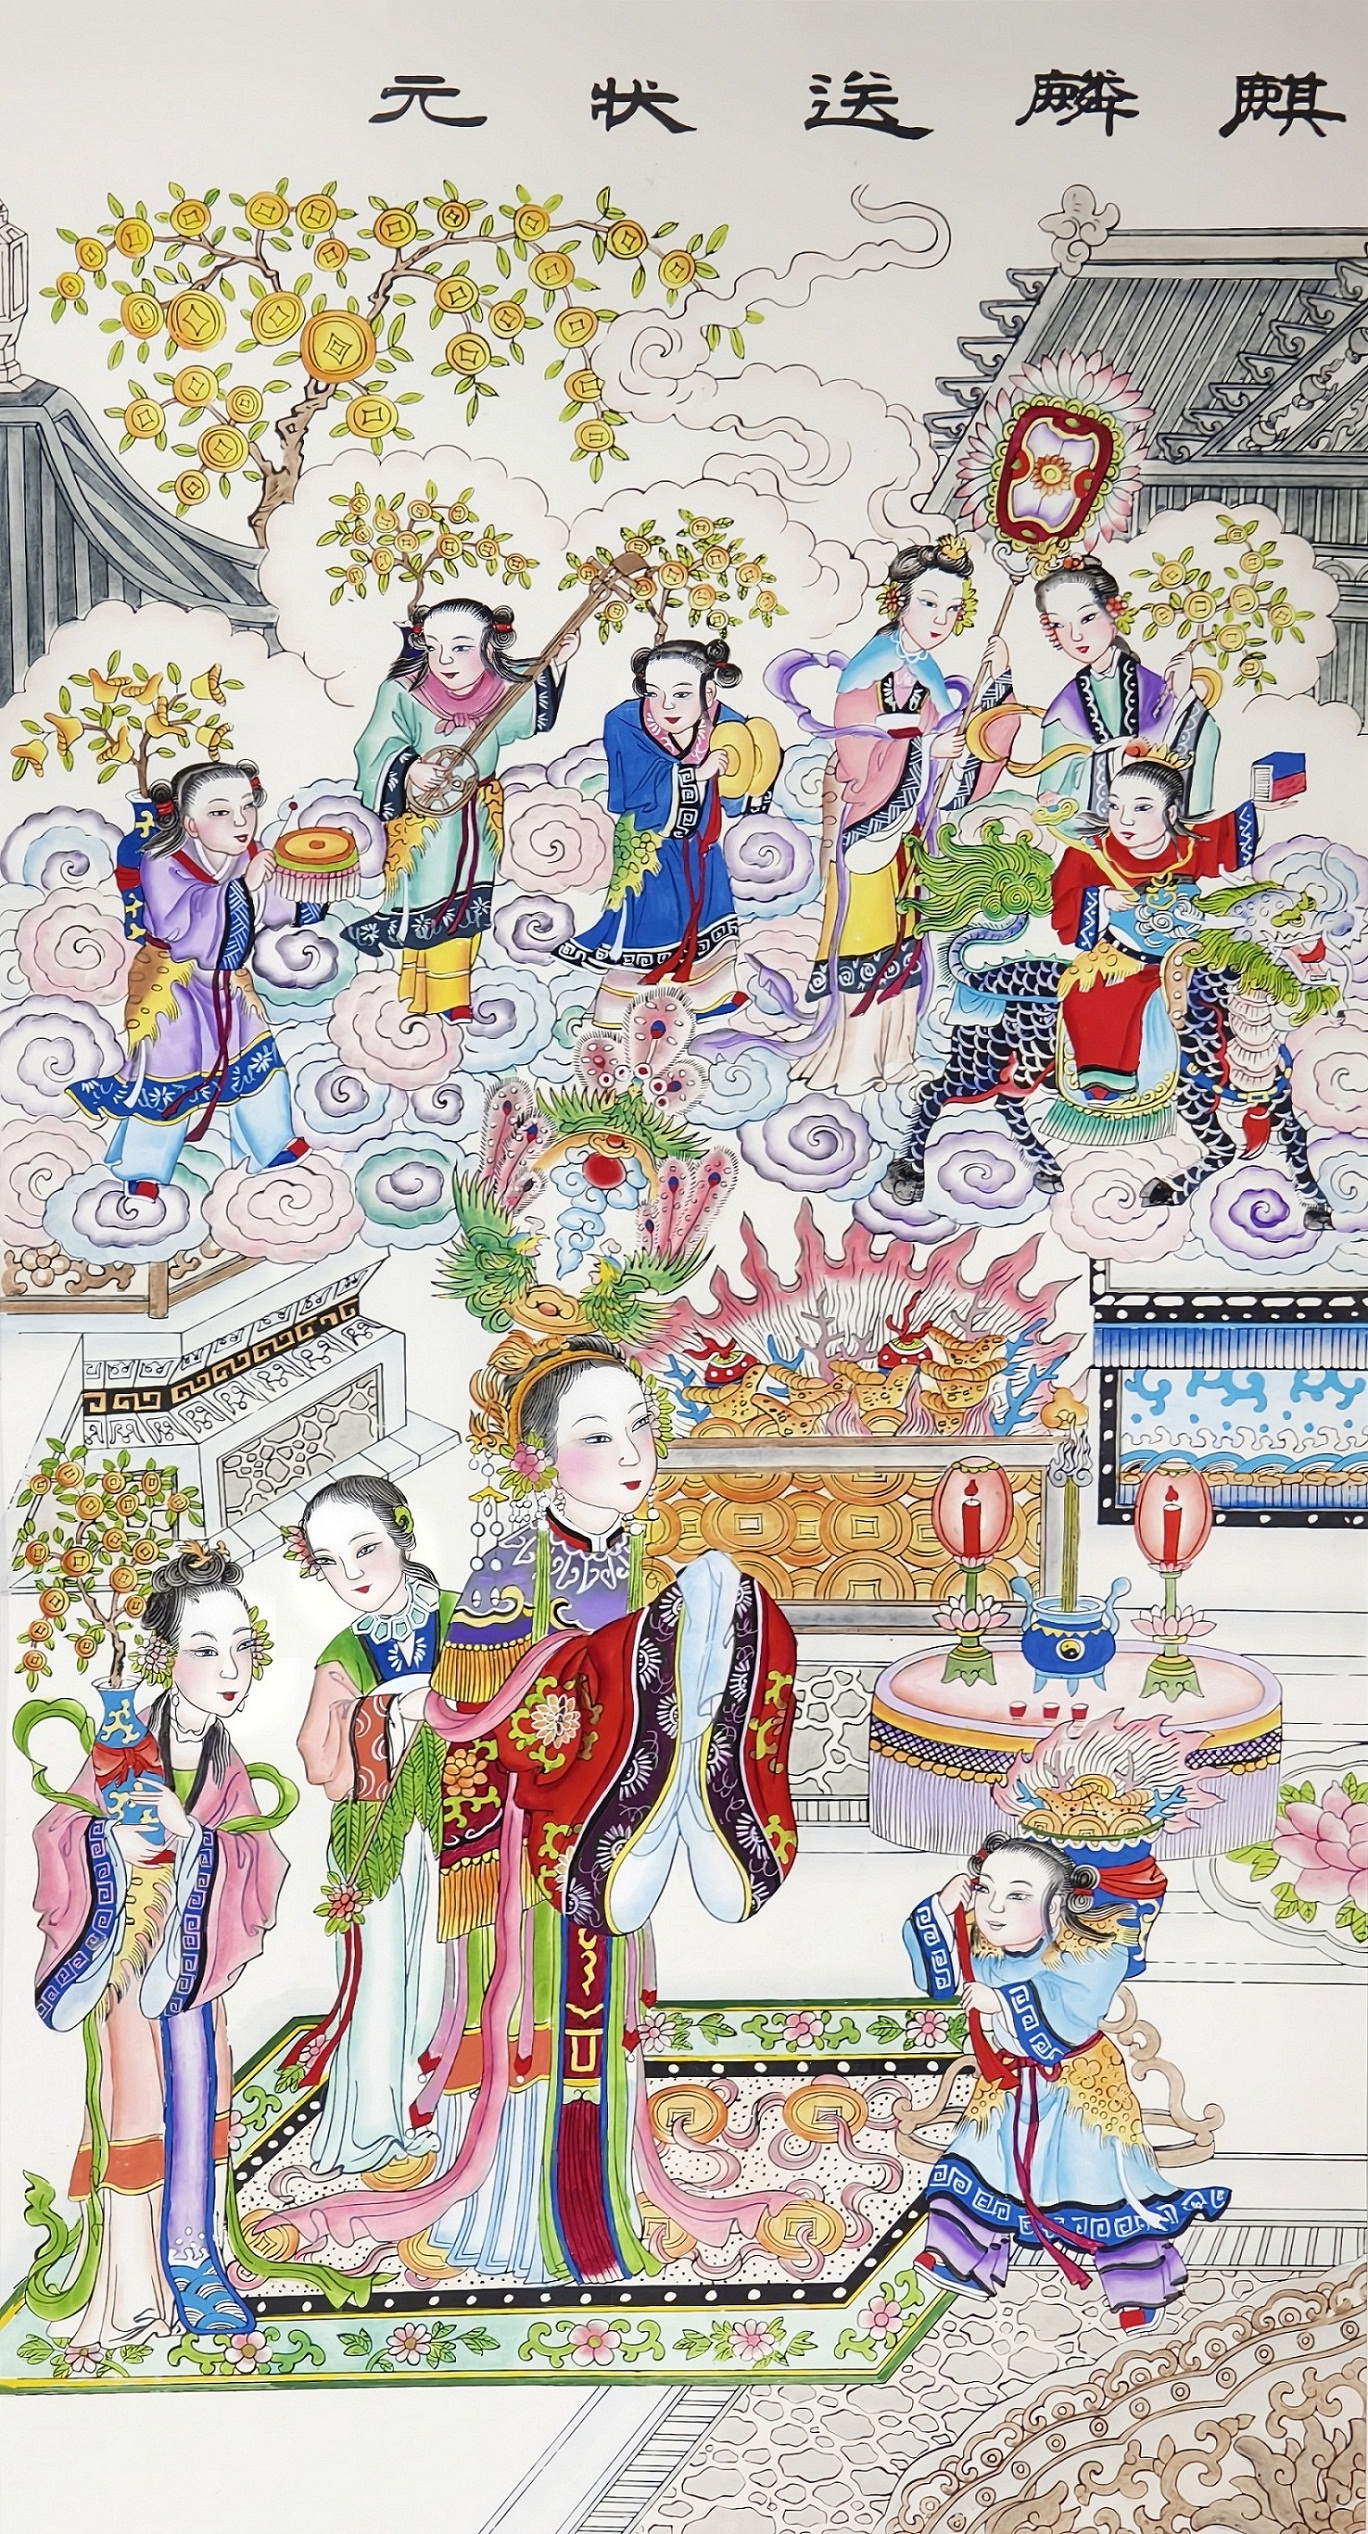 麒麟送状元